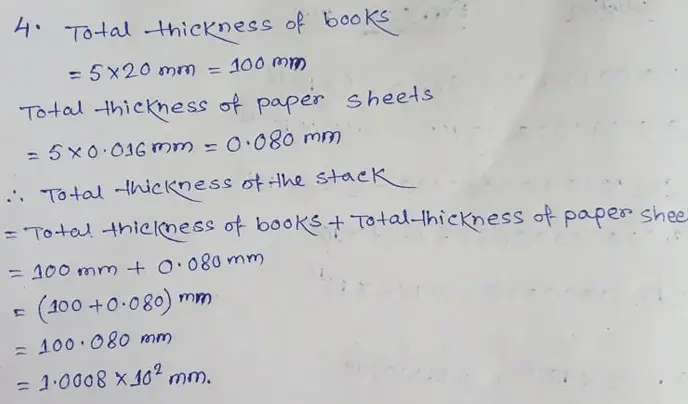 4. Total thickness of books
= 5×20 mm = 100 mm
Total thickness of paper sheets
= 5×0.016mm = 0.080 mm
∴ Total thickness of the stack
= Total thickness of books + Total thickness of paper shee
= 100 mm + 0.080 mm
= (100 +0.080) mm
= 100.080 mm
= 1.0008 ×10² mm.